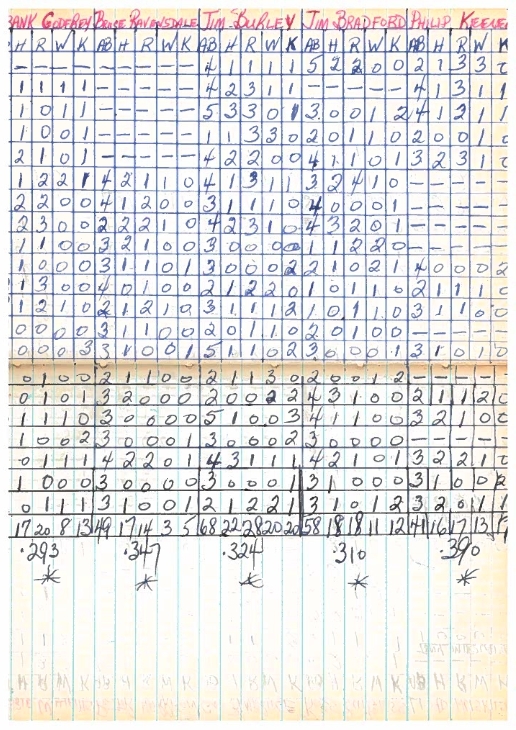 ANK GODFREY BRUSE RAVENSDALE JIM BURLEY JIM BRADFORD PHILIP KEENE
H R W K AB H R W K AB H R W K AB H R W K AB H R W K
- - - - - - - - - 4 1 1 1 1 5 2 2 0 0 2 1 3 3
1 1 1 1 - - - - - 4 2 3 1 1 - - - - - 4 1 3 1 1
1 0 1 1 - - - - - 5 3 3 0 1 3 0 0 1 2 4 1 2 1 1
1 0 0 1 - - - - - 1 1 3 3 0 2 0 1 1 0 2 0 0 1 0
2 1 0 1 - - - - - 4 2 2 0 0 4 1 1 0 1 3 2 3 1
1 2 2 1 4 2 1 1 0 4 1 3 1 1 3 2 4 1 0 - - - -
2 2 0 0 4 1 2 0 0 3 1 1 1 0 4 0 0 0 1 - - - -
2 3 0 0 2 2 2 1 0 4 2 3 1 0 4 3 2 0 1 - - - -
1 1 0 0 3 2 1 0 0 3 0 0 0 0 1 1 2 2 0 - - - -
1 0 0 0 3 1 1 0 1 3 0 0 0 2 2 1 0 2 1 4 0 0 0 2
1 3 0 0 4 0 1 0 0 2 1 2 2 0 1 0 1 1 0 2 1 1 1 0
1 2 1 0 2 1 2 1 0 3 1 1 1 2 1 0 1 1 0 3 1 1 0 0
0 0 0 0 3 1 1 0 0 2 0 1 1 0 2 0 1 0 0 - - - -
0 0 0 3 3 1 0 0 1 5 1 1 0 2 3 0 0 0 1 3 1 0 1 0
0 1 0 0 2 1 1 0 0 2 1 1 3 0 2 0 0 1 2 - - - -
0 1 0 1 3 2 0 0 0 2 0 0 2 2 4 3 1 0 0 2 1 1 2 0
1 1 1 0 3 0 0 0 0 5 1 0 0 3 4 1 1 0 0 3 2 1 0 0
1 0 0 2 3 0 0 0 1 3 0 0 0 2 3 0 0 0 0 - - - -
0 1 1 1 4 2 2 0 1 4 3 1 1 1 4 2 1 0 1 3 2 2 1
1 0 0 0 3 0 0 0 0 3 0 0 0 1 3 1 0 0 0 3 1 0 0 2
0 1 1 1 3 1 0 0 1 2 1 2 2 1 3 1 0 1 2 3 2 0 1 1
17 20 8 13 49 17 14 3 5 68 22 28 20 20 58 18 18 11 12 41 16 17 13
.293 .347 .324 .310 .390
* * * * *